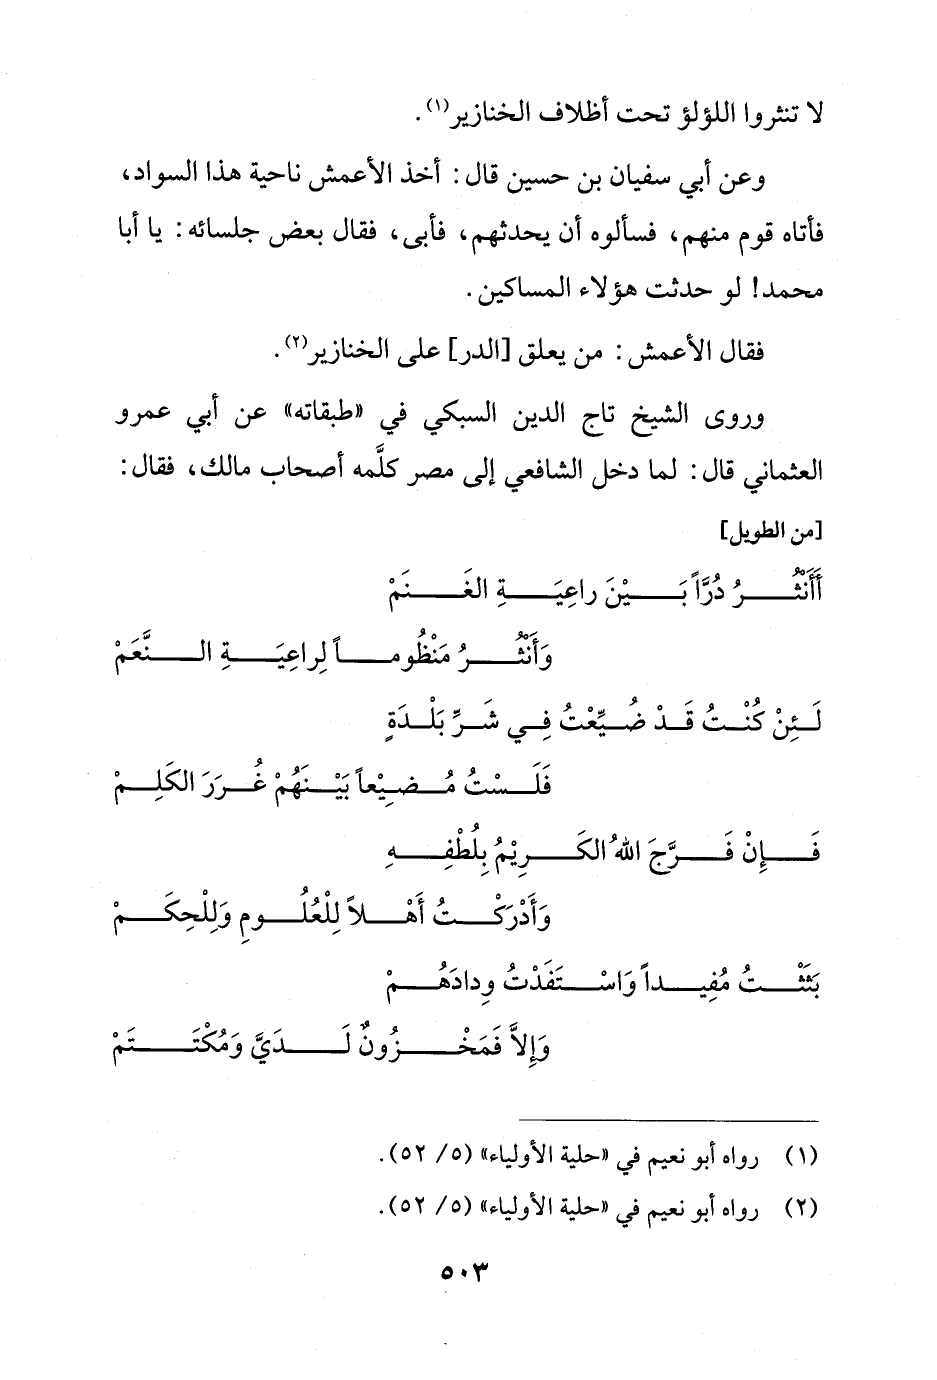 لا تنثروا اللؤلؤ تحت أظلاف الخنازير(١).
وعن أبي سفيان بن حسين قال: أخذ الأعمش ناحية هذا السواد،
فأتاه قوم منهم، فسألوه أن يحدثهم، فأبى، فقال بعض جلسائه: يا أبا
محمد! لو حدثت هؤلاء المساكين.
فقال الأعمش: من يعلق [الدر] على الخنازير(٢).
وروى الشيخ تاج الدين السبكي في «طبقاته» عن أبي عمرو
العثماني قال: لما دخل الشافعي إلى مصر كلَّمه أصحاب مالك، فقال:
[من الطويل]
أَأَنْثُرُ دُرَّاً بَيْنَ راعِيَةِ الغَنَمْ
وَأَنْثُرُ مَنْظُوماً لِراعِيَةِ النَّعَمْ
لَئِنْ كُنْتُ قَدْ ضُيِّعْتُ فِي شَرِّ بَلْدَةٍ
فَلَسْتُ مُضِيْعاً بَيْنَهُمْ غُرَرَ الكَلِمْ
فَإِنْ فَرَّجَ اللهُ الكَرِيْمُ بِلُطْفِهِ
وَأَدْرَكْتُ أَهْلاً لِلْعُلُومِ وَلِلْحِكَمْ
بَثَثْتُ مُفِيداً وَاسْتَفَدْتُ وِدادَهُمْ
وَإِلاَّ فَمَخْزُونٌ لَدَيَّ وَمُكْتَتَمْ
(١) رواه أبو نعيم في «حلية الأولياء» (٥/ ٥٢).
(٢) رواه أبو نعيم في «حلية الأولياء» (٥/ ٥٢).
٥٠٣